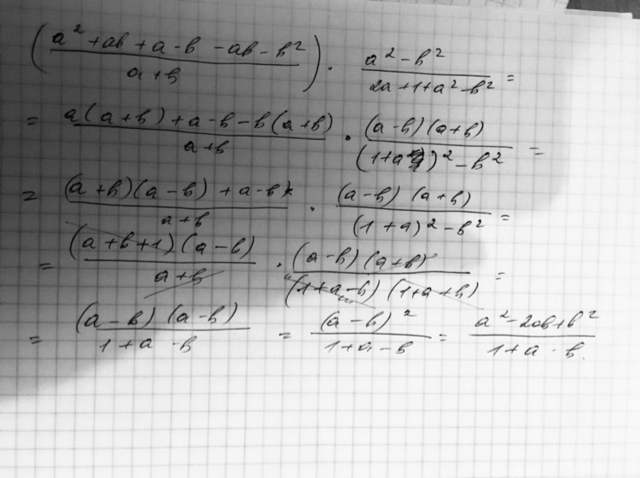 (a² + ab + a - b - ab - b² / a + b) · a² - b² / 2a + 1 + a² - b² =
= a(a + b) + a - b - b(a + b) / a + b · (a - b)(a + b) / (1 + a)² - b² =
= (a + b)(a - b) + a - b / a + b · (a - b)(a + b) / (1 + a)² - b² =
= (a + b + 1)(a - b) / a + b · (a - b)(a + b) / (1 + a - b)(1 + a + b) =
= (a - b)(a - b) / 1 + a - b = (a - b)² / 1 + a - b = a² - 2ab + b² / 1 + a - b.